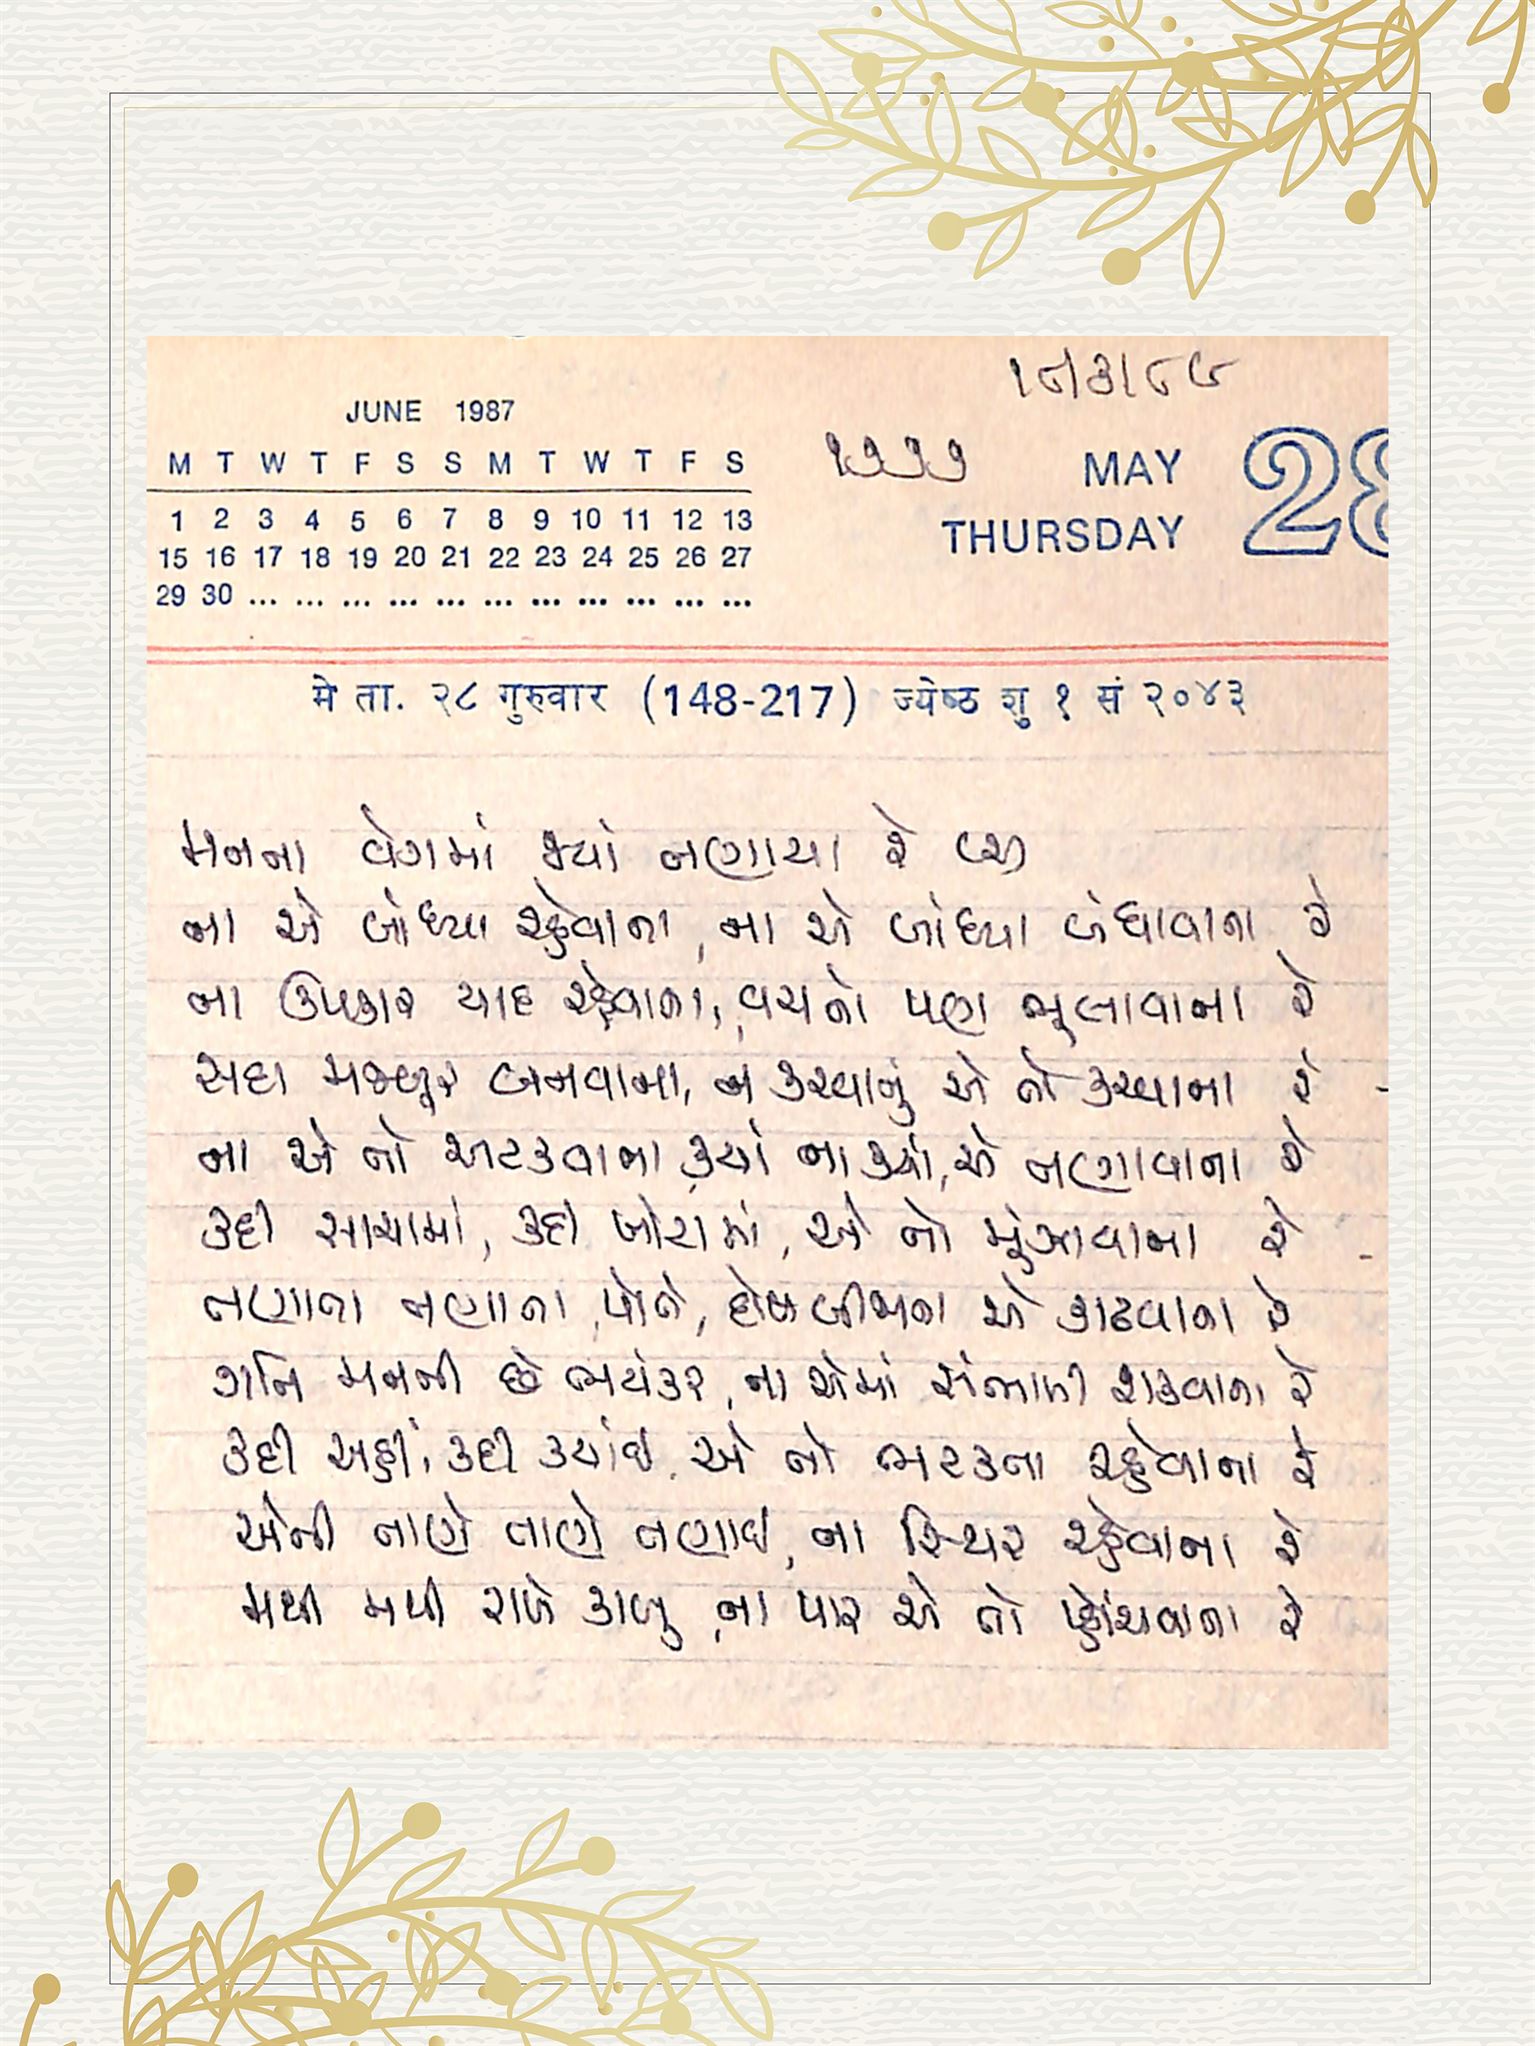 ૧૮/૩/૮૯
JUNE 1987
M T W T F S S M T W T F S
૧૭૭૭ MAY 28
THURSDAY
1 2 3 4 5 6 7 8 9 10 11 12 13
15 16 17 18 19 20 21 22 23 24 25 26 27
29 30 ... ... ... ... ... ... ... ... ... ... ...
मे ता. २८ गुरुवार (148-217) ज्येष्ठ शु १ सं २०४३
મનના વેગમાં જ્યાં તણાયા રે
ના એ બાંધ્યા રહેવાના, ના એ બાંધ્યા બંધાવાના રે
ના ઉપકાર યાદ રહેવાના, વચનો પણ ભૂલાવાના રે
સદા મજબૂર બનવાના, ન કરવાનું એ તો કરવાના રે
ના એ તો અટકવાના ક્યાં ના ક્યાં, એ તણાવાના રે
કદી સાચામાં, કદી ખોટામાં, એ તો મૂંઝાવાના રે
તણાતા તણાતા પોતે, દોષ બીજાના એ કાઢવાના રે
ગતિ મનની છે ભયંકર, ના એમાં સંભાળી શકવાના રે
કદી અહીં, કદી ક્યાંઇ એ તો ભટકતા રહેવાના રે
એની તાણે તાણે તણાઇ, ના સ્થિર રહેવાના રે
મથી મથી રાખે કાબુ, ના પાર એ તો પ્હોંચવાના રે